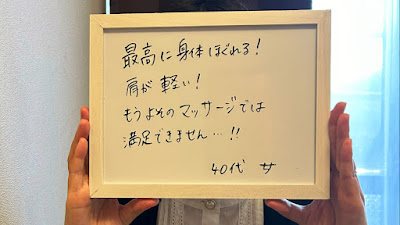 最高に身体ほぐれる!
肩が軽い!
もうよそのマッサージでは
満足できません…!!
40代 女